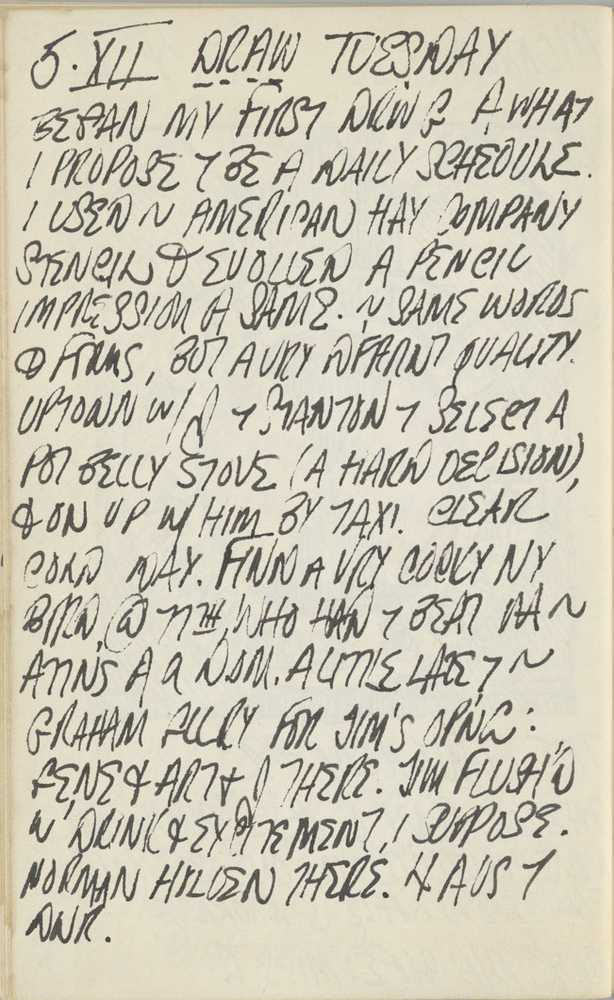 5·XII DRAW TUESDAY
BEGAN MY FIRST DRWG A WHAT
I PROPOSE T BE A DAILY SCHEDULE.
I USED ~ AMERICAN HAY COMPANY
STENCIL & EVOLVED A PENCIL
IMPRESSION A SAME. ~ SAME WORDS
& FORMS, BUT A VRY DFFRNT QUALITY.
UPTOWN W/ J T STANTON T SELECT A
POT BELLY STOVE (A HARD DECISION),
& ON UP W/ HIM BY TAXI. CLEAR
COLD DAY. FIND A VRY COCKY NY
BIRD @ 77TH WHO HAD T BEAT ~
A LITTLE LATE T ~
GRAHAM GLLRY FOR JIM'S OPNG:
GENE & ART & J THERE. JIM FLUSH'D
W' DRINK & EXCITEMENT, I SUPPOSE.
NORMAN THERE. 4 A US T
DNR.